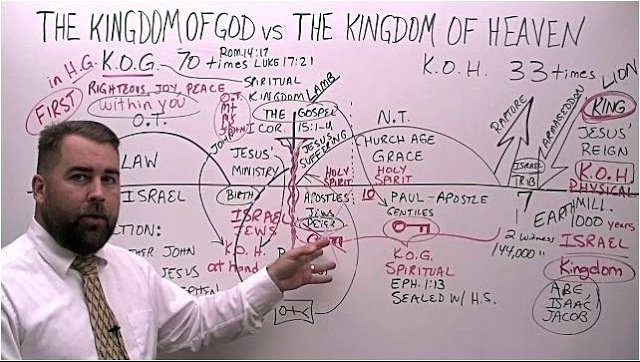 THE KINGDOM OF GOD vs THE KINGDOM OF HEAVEN
in H.G. K.O.G. 70 times ROM. 14:17 LUKE 17:21
K.O.H. 33 times
SPIRITUAL KINGDOM
LAMB
LION
FIRST
RIGHTEOUS, JOY, PEACE
within you
O.T.
MT
JOHN
THE GOSPEL
I COR. 15:1-4
N.T.
RAPTURE
ARMAGEDDON
KING
JESUS'
REIGN
K.O.H
PHYSICAL
O.T.
LAW
JOHN
JESUS'
MINISTRY
JESUS
SUFFERING
HOLY
SPIRIT
CHURCH AGE
GRACE
HOLY
SPIRIT
ISRAEL
TRIB
7
ISRAEL
BIRTH
APOSTLES
JEWS
PETER
10
PAUL - APOSTLE
GENTILES
EARTH
MILL.
1000 years
ISRAEL
JEWS
K.O.H.
at hand
K.O.G.
SPIRITUAL
EPH. 1:13
SEALED W/ H.S.
2 witness
144,000
ISRAEL
Kingdom
ABE
ISAAC
JACOB
TION:
THER JOHN
JESUS
PHEN